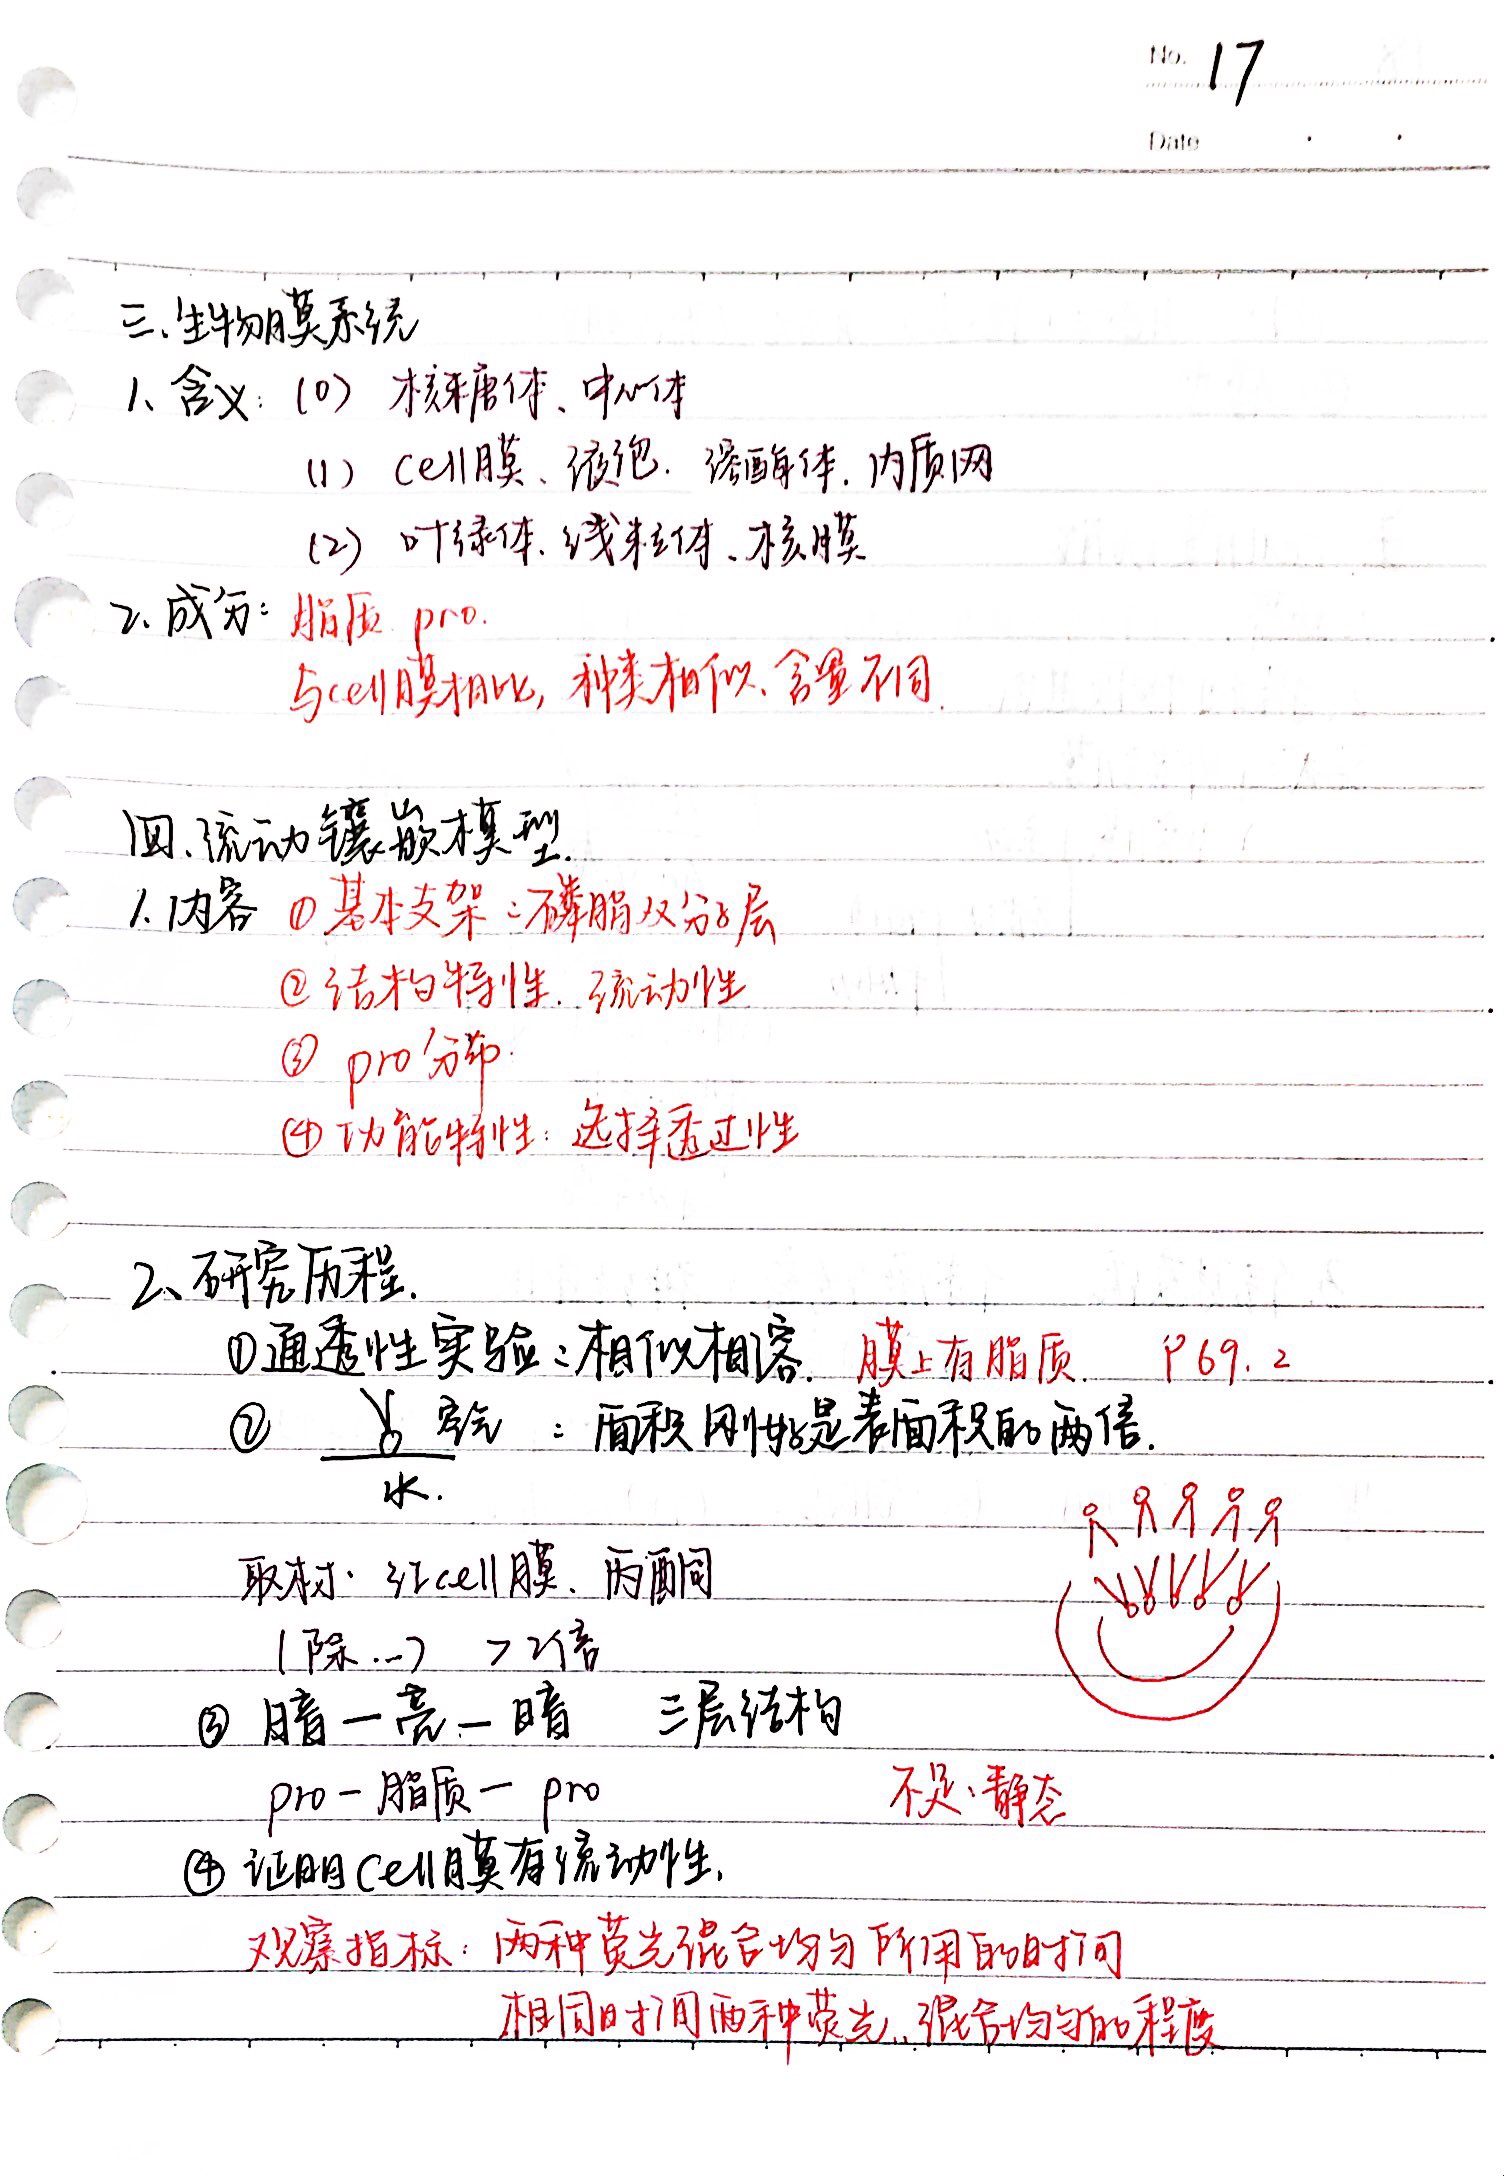 No. 17
Date
三、生物膜系统
1、含义:(0) 核糖体、中心体
(1) cell膜、液泡、溶酶体、内质网
(2) 叶绿体、线粒体、核膜
2、成分: 脂质 pro.
与cell膜相比, 种类相似、含量不同.
四、流动镶嵌模型.
1、内容 ①基本支架:磷脂双分子层
②结构特性. 流动性
③ pro分布.
④功能特性: 选择透过性
2、研究历程.
①通透性实验:相似相溶. 膜上有脂质. P69.2
② 实验 : 面积刚好是表面积的两倍.
水.
取材: 红cell膜、丙酮
(除...) >2倍
③ 暗一亮一暗 三层结构
pro一脂质一pro 不足:静态
④ 证明cell膜有流动性.
观察指标: 两种荧光混合均匀所用的时间
相同时间两种荧光..混合均匀的程度